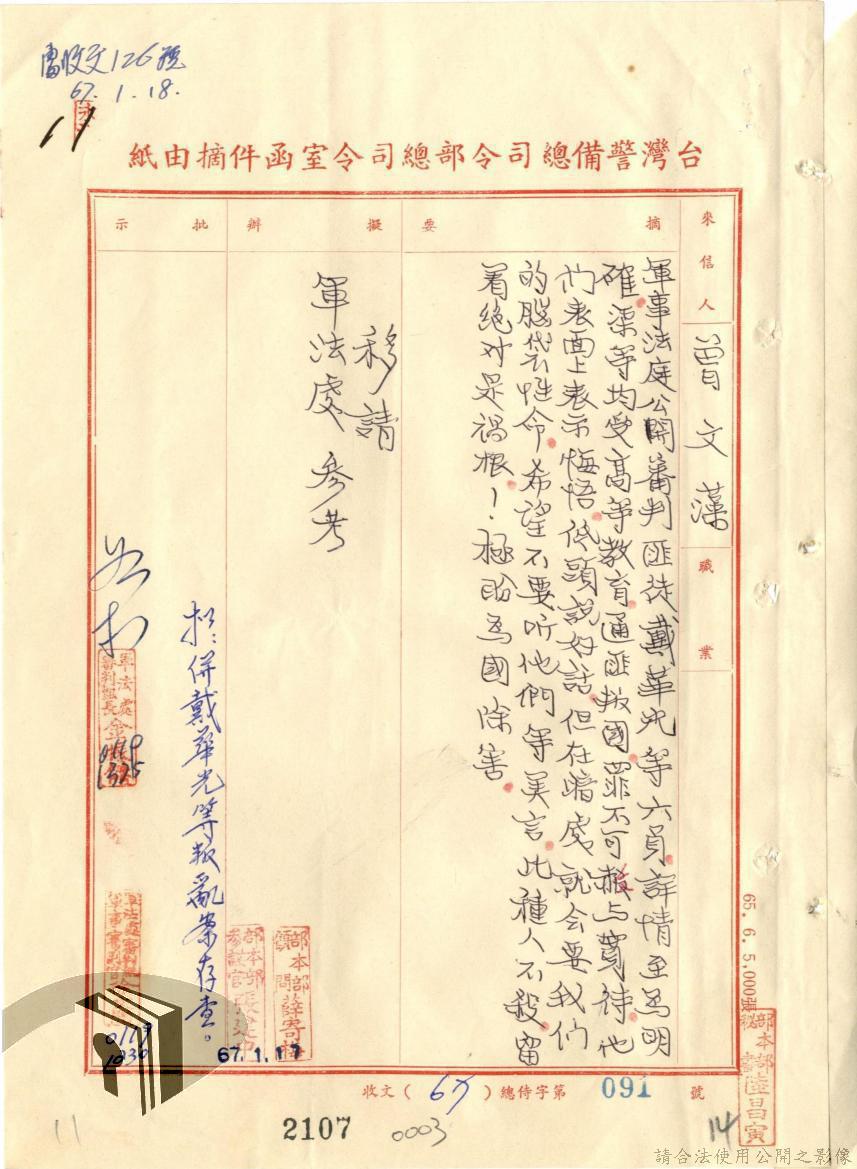 審收文126號
67.1.18.
台灣警備總司令部總司令室函件摘由紙
來信人
曾文藻
職業
摘要
軍事法庭公開審判匪徒戴華光等六員詳情至為明
確渠等均受高等教育通匪叛國罪不可赦与寬待他
們表面上表示悔悟低頭說好話但在暗處就会要我们
的腦袋性命希望不要听他們等美言此種人不殺留
着绝对是禍根!極盼為國除害
擬辦
移請
軍法處 參考
批示
擬:併戴華光等叛亂案存查。
軍法處
審判組長金
0119
1525
0119
1030
部本部
顧問薛寄梅
部本部
參議官張
67.1.17
收文(67)總侍字第 091 號
65.6.5,000張
部本部
秘書陸昌寅
14
11
2107
0003
請合法使用公開之影像